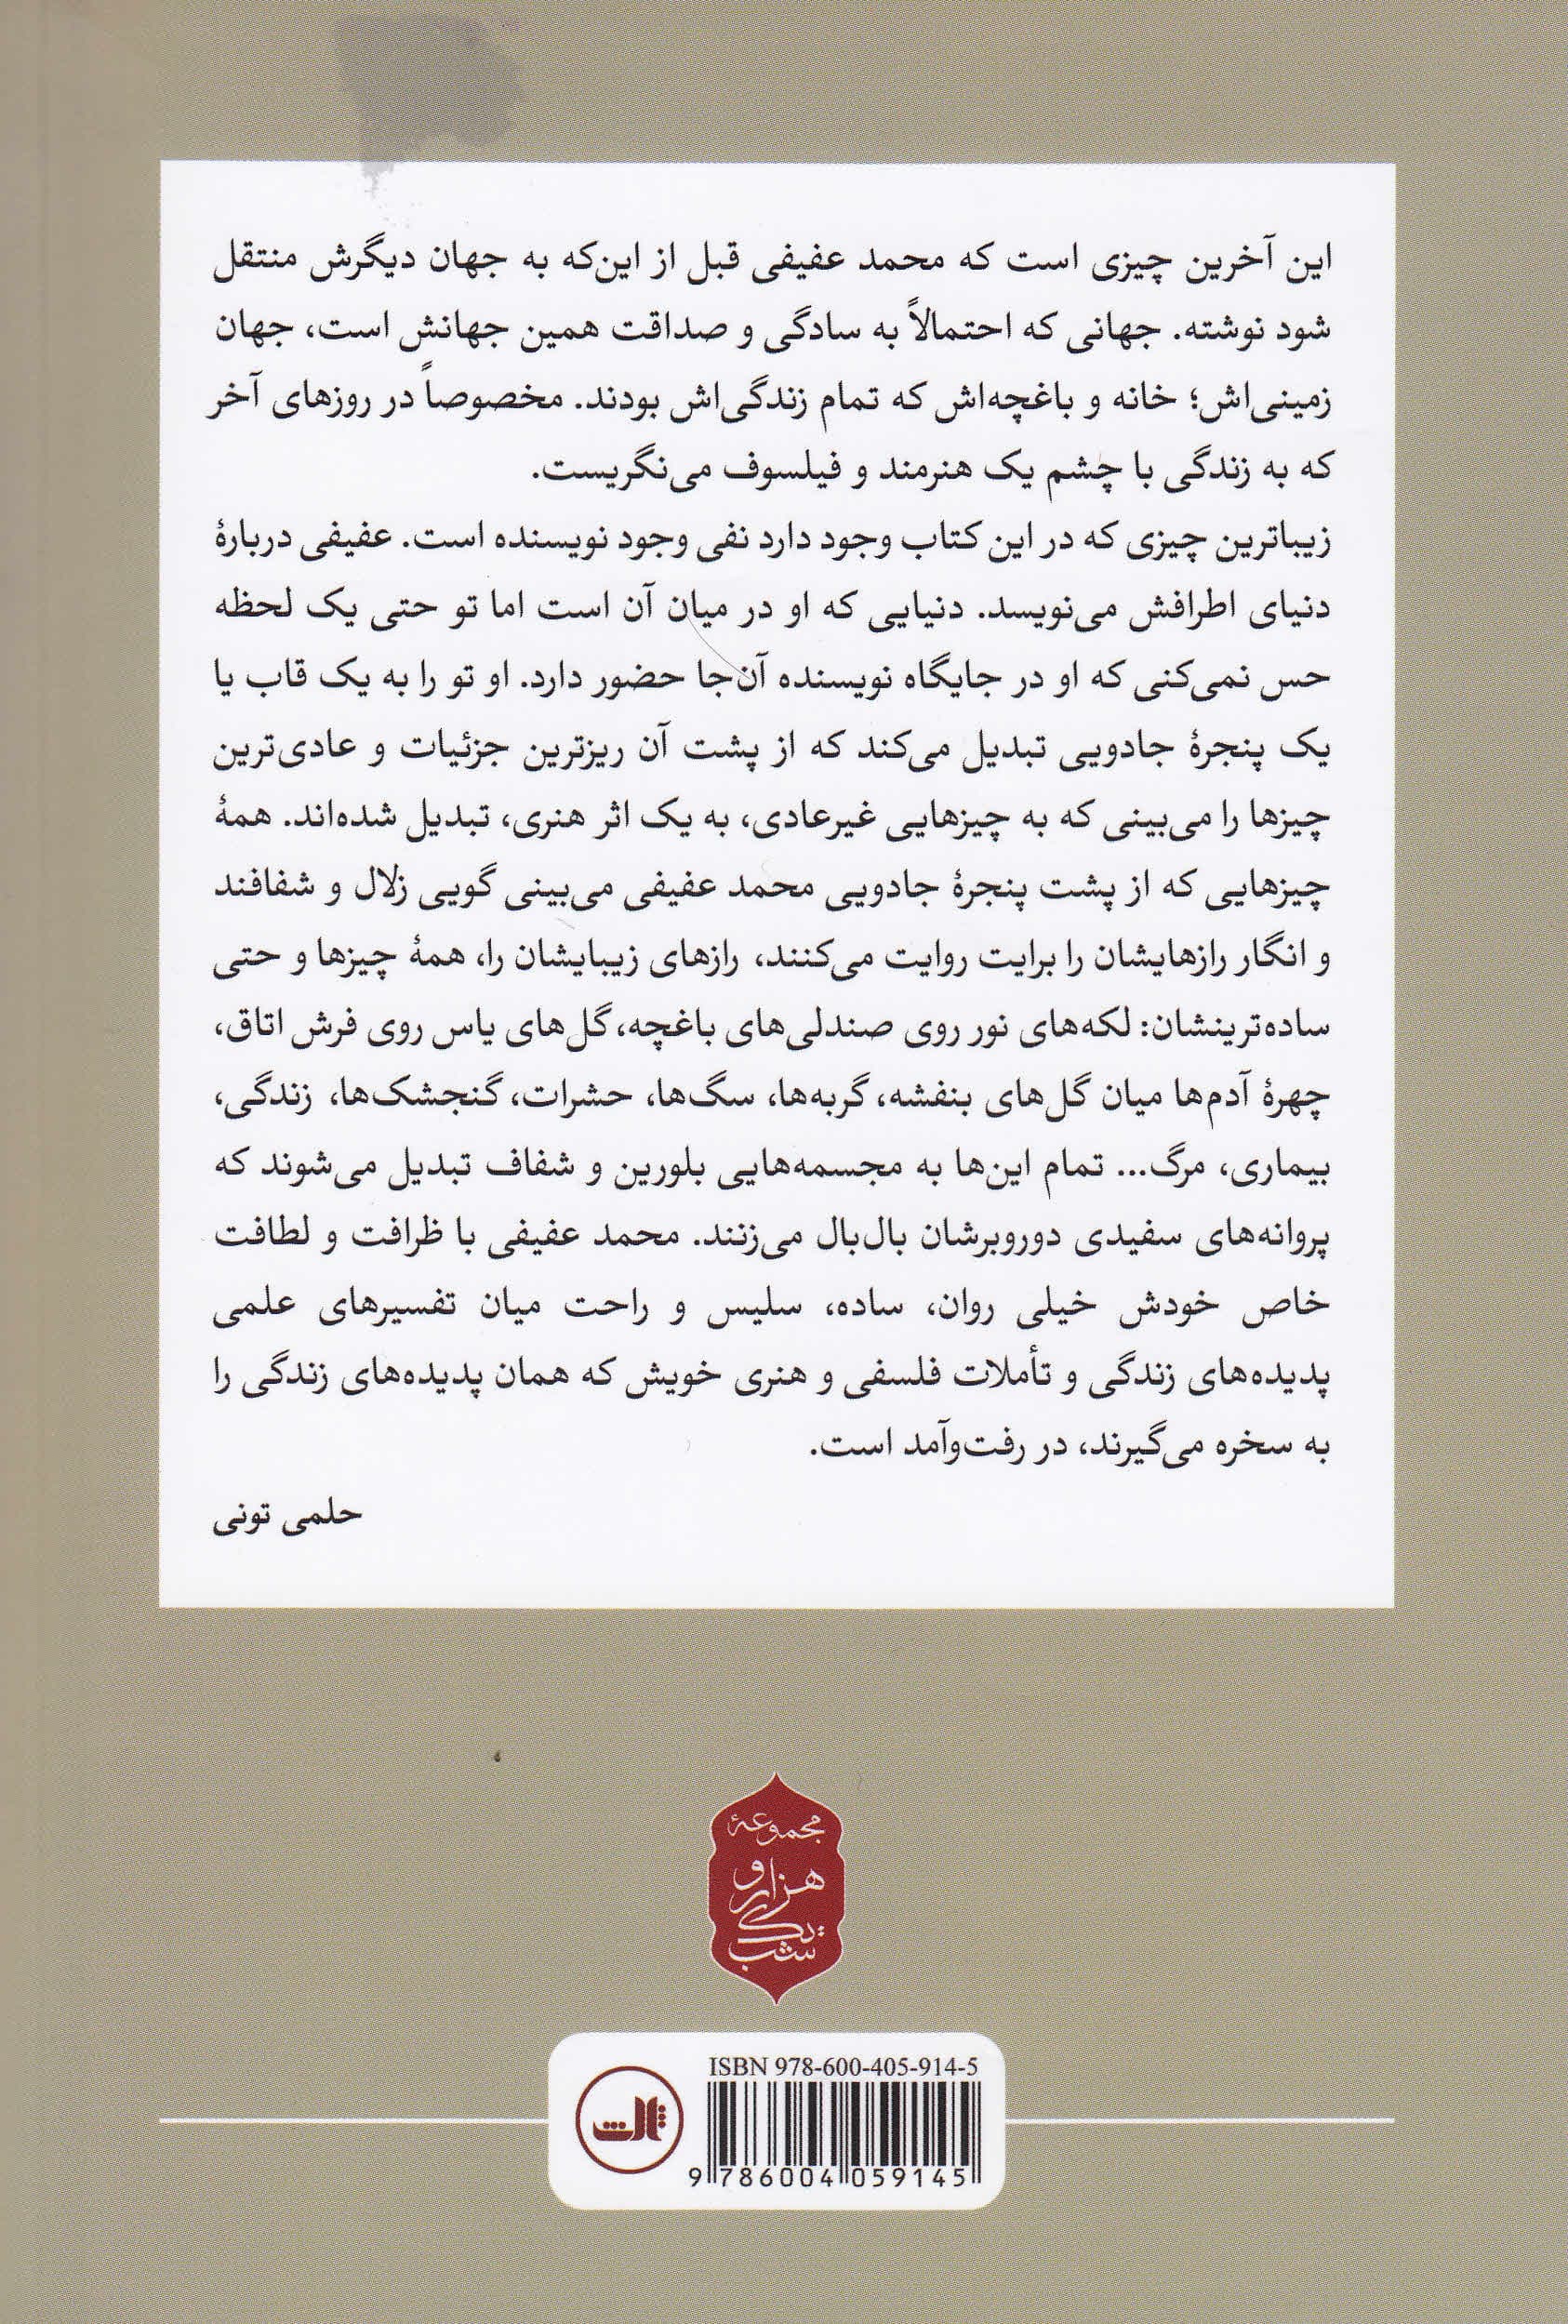 این آخرین چیزی است که محمد عفیفی قبل از این‌که به جهان دیگرش منتقل
شود نوشته. جهانی که احتمالاً به سادگی و صداقت همین جهانش است، جهان
زمینی‌اش؛ خانه و باغچه‌اش که تمام زندگی‌اش بودند. مخصوصاً در روزهای آخر
که به زندگی با چشم یک هنرمند و فیلسوف می‌نگریست.
زیباترین چیزی که در این کتاب وجود دارد نفی وجود نویسنده است. عفیفی دربارهٔ
دنیای اطرافش می‌نویسد. دنیایی که او در میان آن است اما تو حتی یک لحظه
حس نمی‌کنی که او در جایگاه نویسنده آن‌جا حضور دارد. او تو را به یک قاب یا
یک پنجرهٔ جادویی تبدیل می‌کند که از پشت آن ریزترین جزئیات و عادی‌ترین
چیزها را می‌بینی که به چیزهایی غیرعادی، به یک اثر هنری، تبدیل شده‌اند. همهٔ
چیزهایی که از پشت پنجرهٔ جادویی محمد عفیفی می‌بینی گویی زلال و شفافند
و انگار رازهایشان را برایت روایت می‌کنند، رازهای زیبایشان را، همهٔ چیزها و حتی
ساده‌ترینشان: لکه‌های نور روی صندلی‌های باغچه، گل‌های یاس روی فرش اتاق،
چهرهٔ آدم‌ها میان گل‌های بنفشه، گربه‌ها، سگ‌ها، حشرات، گنجشک‌ها، زندگی،
بیماری، مرگ... تمام این‌ها به مجسمه‌هایی بلورین و شفاف تبدیل می‌شوند که
پروانه‌های سفیدی دوروبرشان بال‌بال می‌زنند. محمد عفیفی با ظرافت و لطافت
خاص خودش خیلی روان، ساده، سلیس و راحت میان تفسیرهای علمی
پدیده‌های زندگی و تأملات فلسفی و هنری خویش که همان پدیده‌های زندگی را
به سخره می‌گیرند، در رفت‌وآمد است.
حلمی تونی
مجموعهٔ
هزار و
یک
شب
ISBN 978-600-405-914-5
ثالث
9 786004 059145